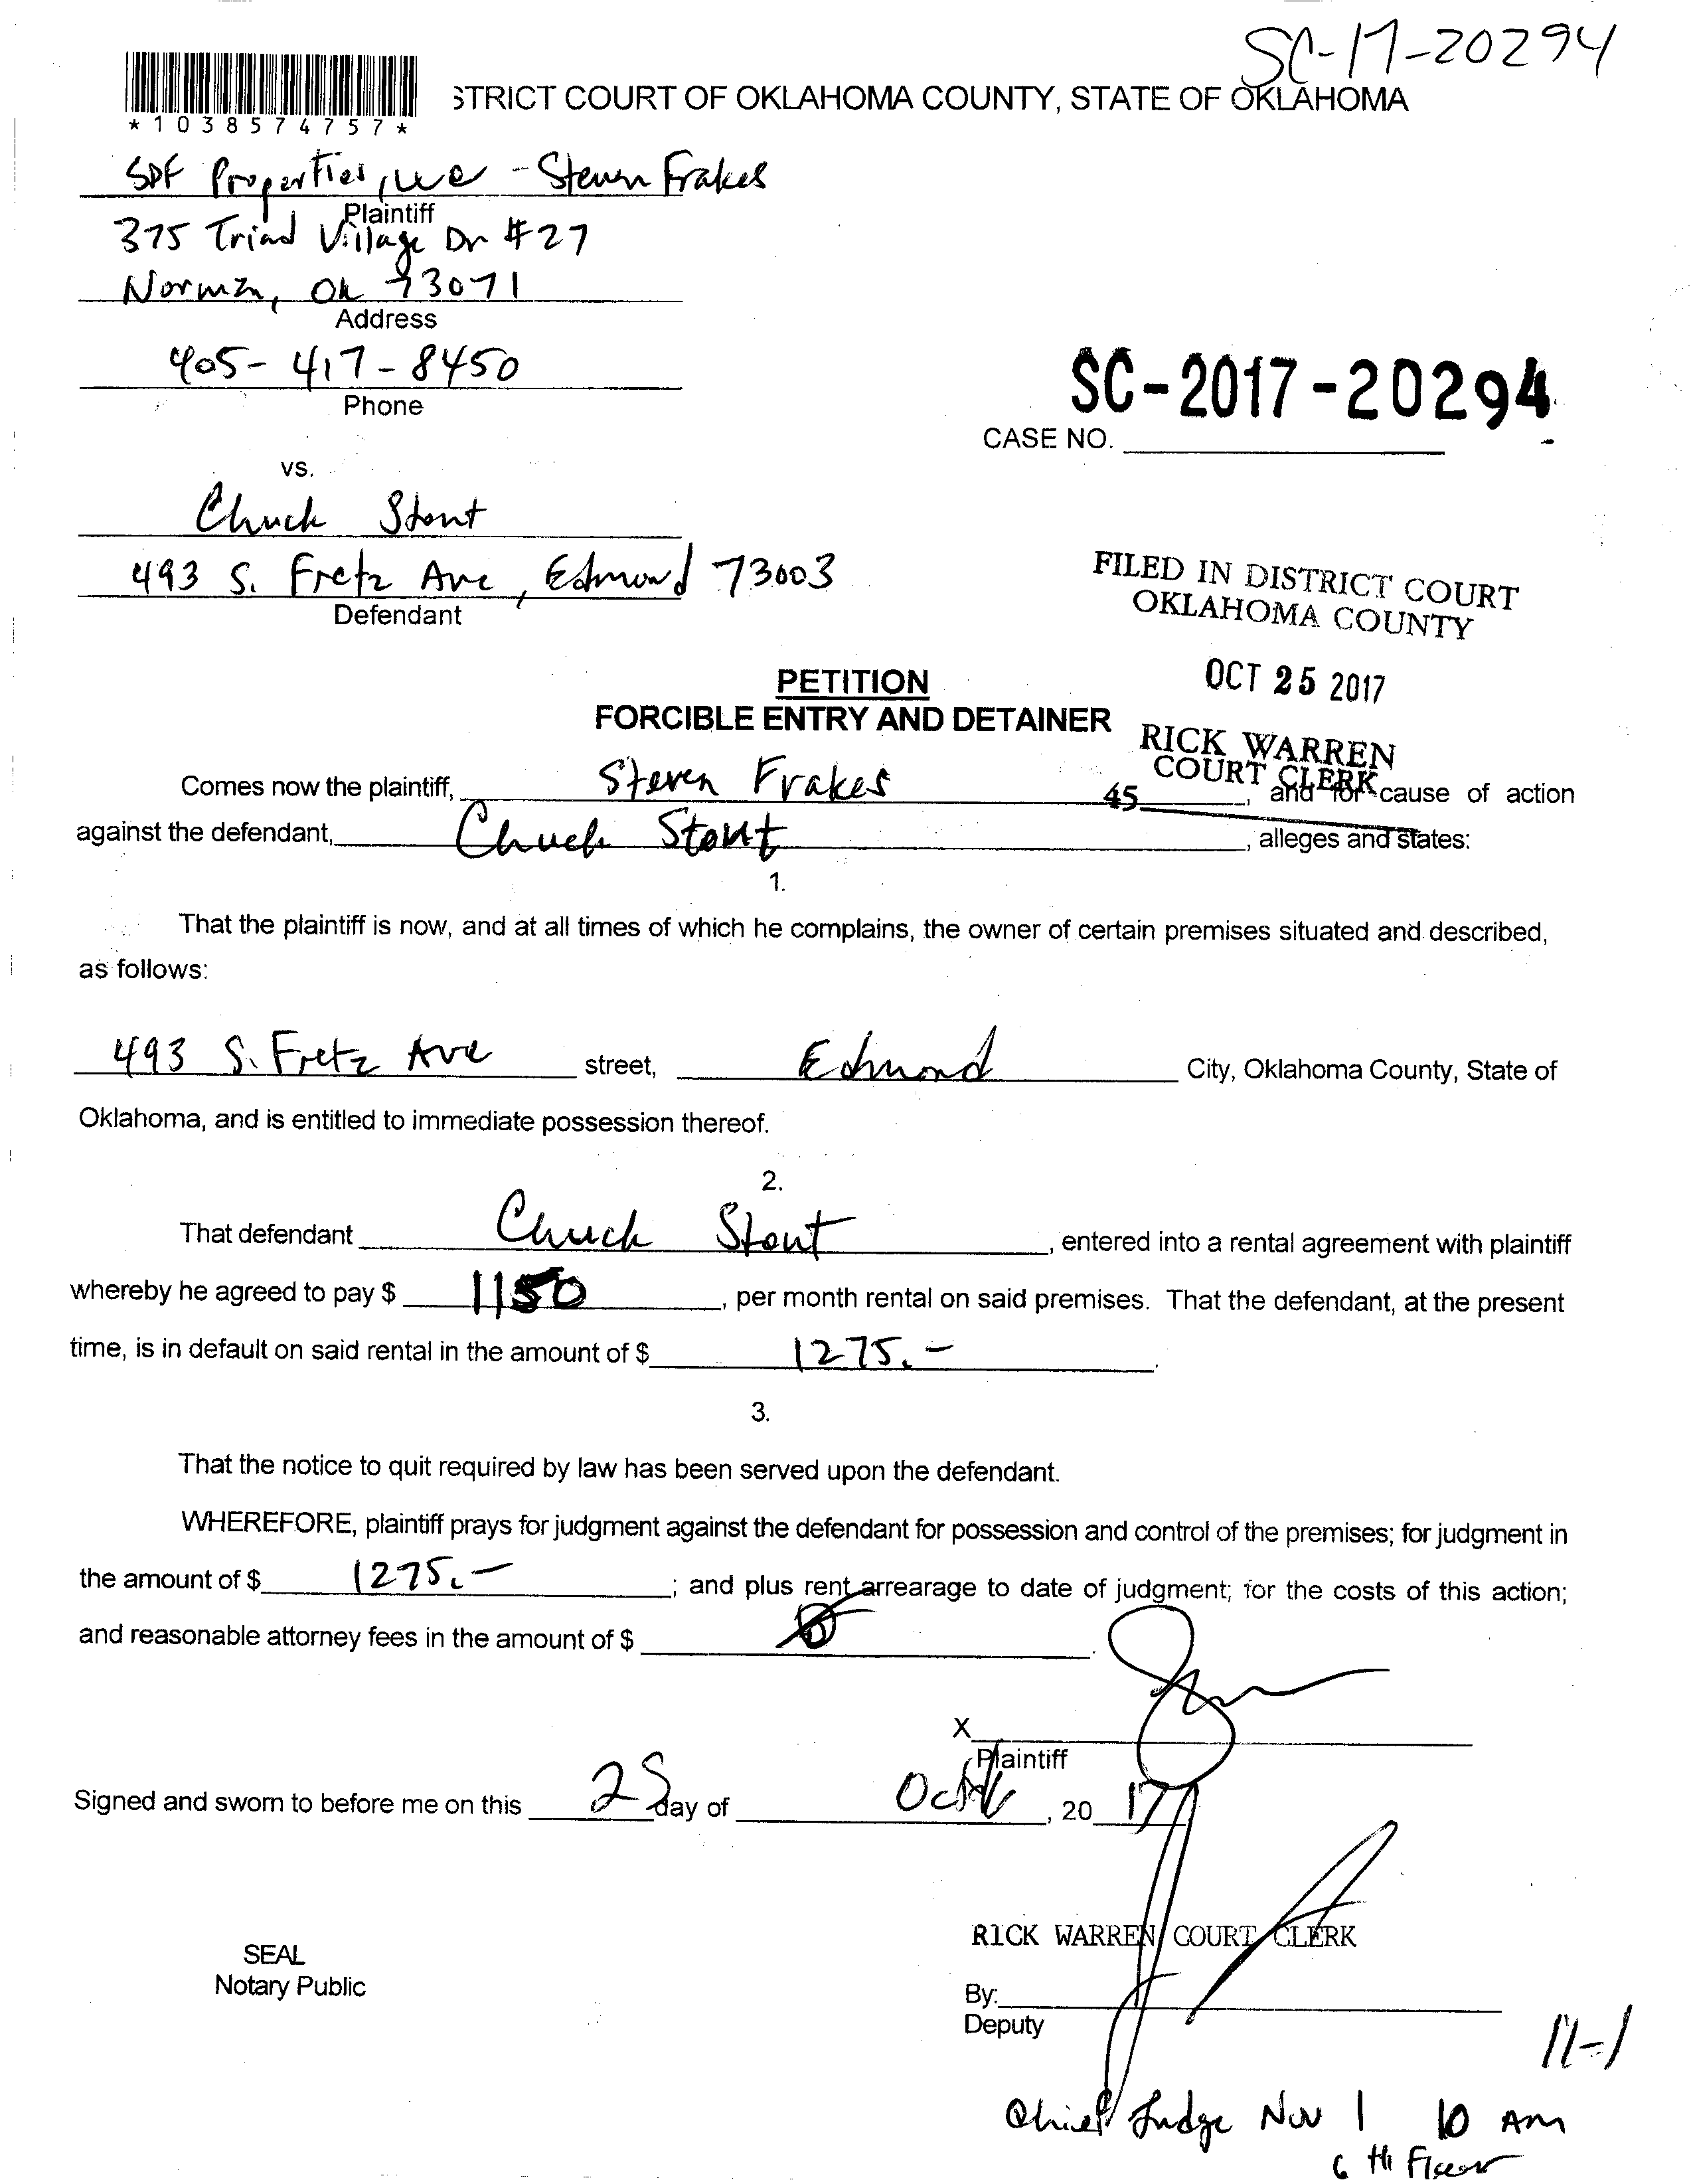 SC-17-20294
*1038574757*
STRICT COURT OF OKLAHOMA COUNTY, STATE OF OKLAHOMA
SDF Properties, LLC - Steven Frakes
Plaintiff
375 Triad Village Dr #27
Norman, Ok 73071
Address
405-417-8450
Phone
SC-2017-20294
CASE NO.
vs.
Chuck Stout
493 S. Fretz Ave, Edmond 73003
Defendant
FILED IN DISTRICT COURT
OKLAHOMA COUNTY
OCT 25 2017
RICK WARREN
COURT CLERK
45
PETITION
FORCIBLE ENTRY AND DETAINER
Comes now the plaintiff, Steven Frakes, and for cause of action
against the defendant, Chuck Stout, alleges and states:
1.
That the plaintiff is now, and at all times of which he complains, the owner of certain premises situated and described,
as follows:
493 S. Fretz Ave street, Edmond City, Oklahoma County, State of
Oklahoma, and is entitled to immediate possession thereof.
2.
That defendant Chuck Stout, entered into a rental agreement with plaintiff
whereby he agreed to pay $ 1150, per month rental on said premises. That the defendant, at the present
time, is in default on said rental in the amount of $ 1275.-.
3.
That the notice to quit required by law has been served upon the defendant.
WHEREFORE, plaintiff prays for judgment against the defendant for possession and control of the premises; for judgment in
the amount of $ 1275.-; and plus rent arrearage to date of judgment; for the costs of this action;
and reasonable attorney fees in the amount of $ .
X
Plaintiff
Signed and sworn to before me on this 25 day of Oct, 20 17
RICK WARREN COURT CLERK
SEAL
Notary Public
By:
Deputy
11-1
Chief Judge Nov 1 10 Am
6th Floor